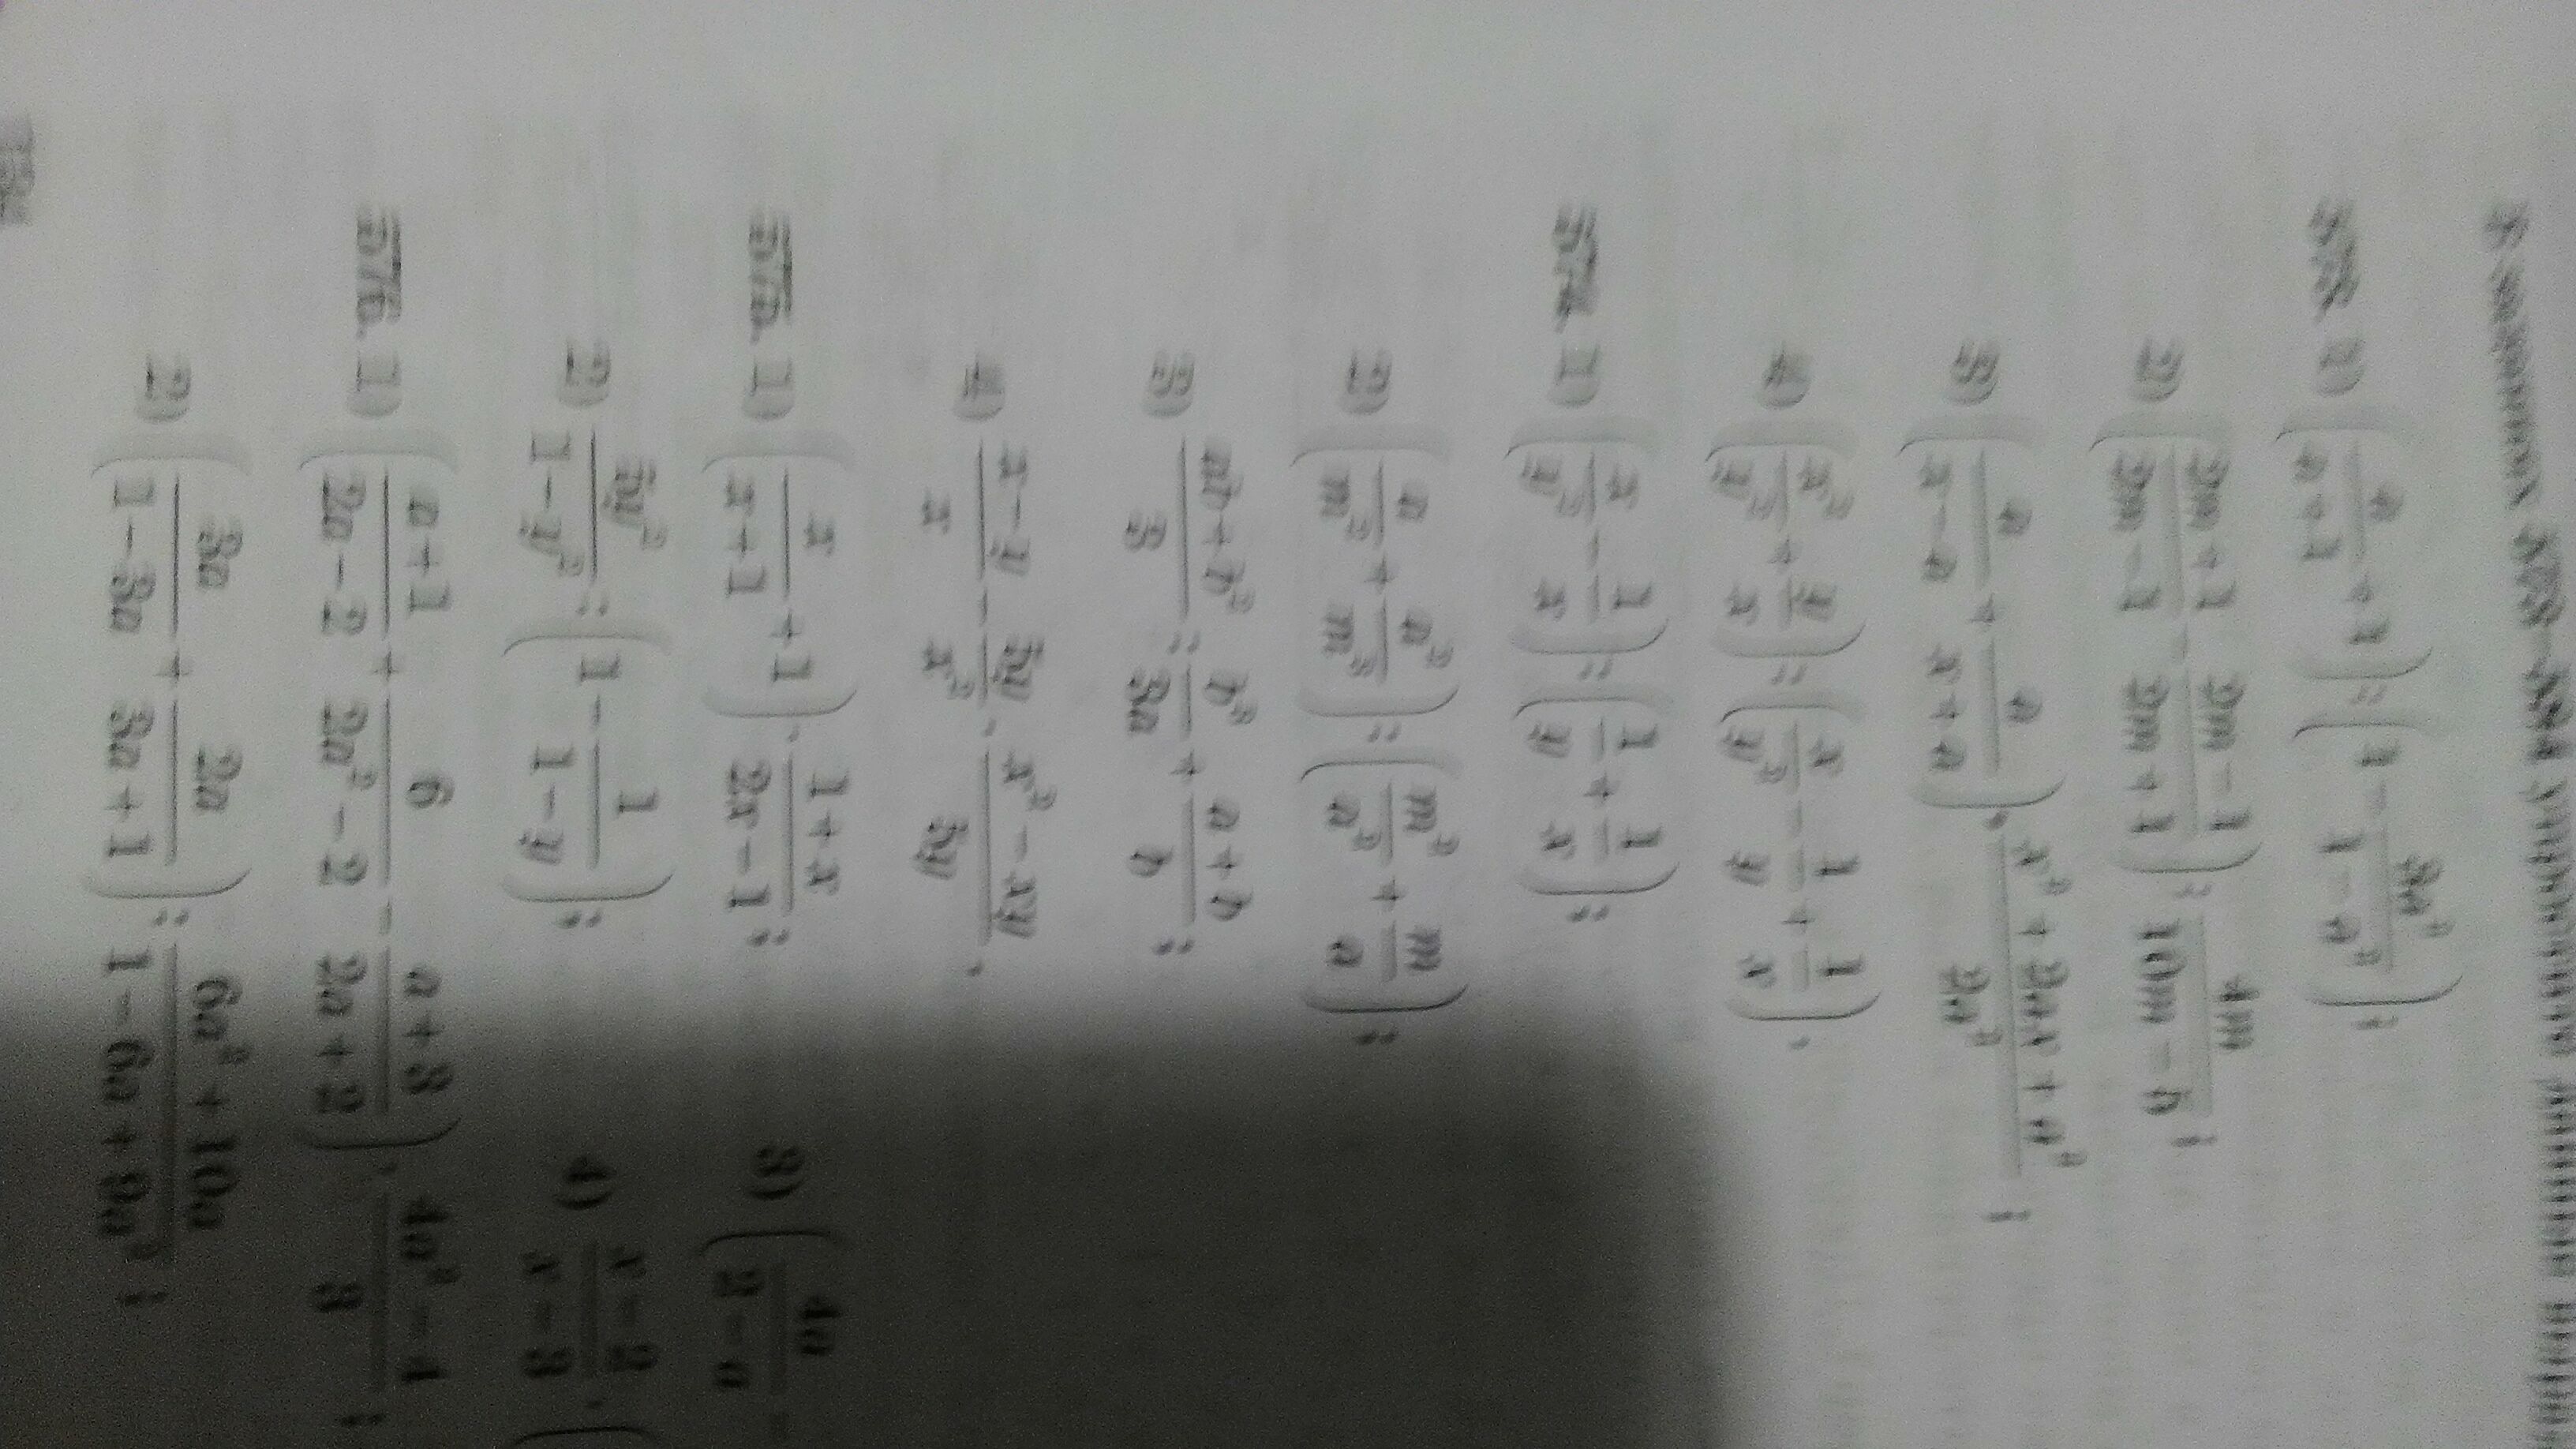 573. 1) (a/(a+1) + 1) : (1 − 3a²/(1−a²));
2) ((2m+1)/(2m−1) − (2m−1)/(2m+1)) : 4m/(10m−5);
3) (a/(x−a) + a/(x+a)) · (x²+2ax+a²)/(2a²);
4) (x²/y² + y/x) : (x/y² − 1/y + 1/x).
574. 1) (x/y² − 1/x) : (1/y + 1/x);
2) (a/m² + a²/m³) : (m²/a² + m/a);
3) (ab+b²)/3 : b³/(3a) + (a+b)/b;
4) (x−y)/x − 5y/x² · (x²−xy)/(5y).
575. 1) (x/(x+1) + 1) · (1+x)/(2x−1);
2) 5y²/(1−y²) : (1 − 1/(1−y));
3) (4a/(2−a) −
4) (x−2)/(x−3) · (
576. 1) ((a+1)/(2a−2) + 6/(2a²−2) − (a+3)/(2a+2)) · (4a²−4)/3;
2) (3a/(1−3a) + 2a/(3a+1)) : (6a²+10a)/(1−6a+9a²);